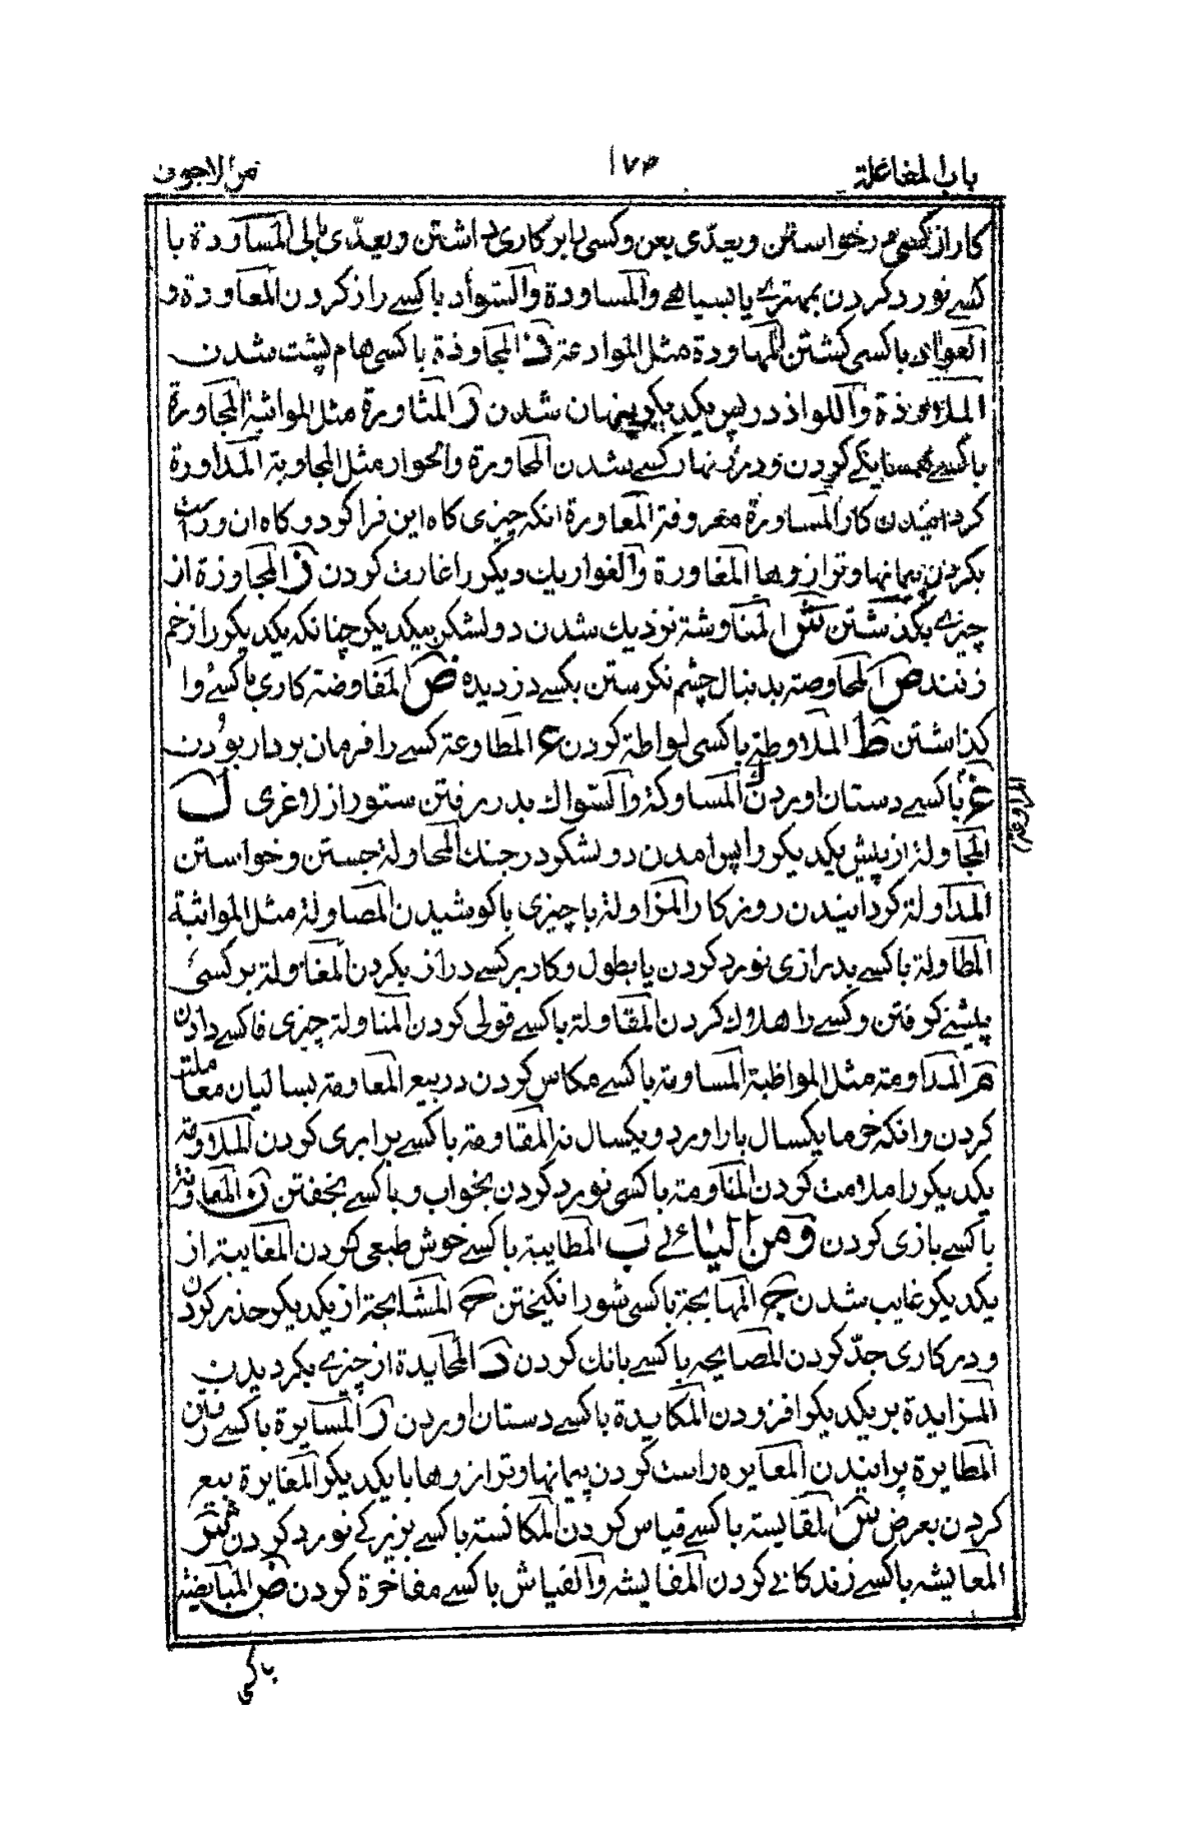 باب المفاعلة ١٧٣ من الاجوف
كار از كسى در خواستن ويعدّى بعن وكسى را بر كارى داشتن ويعدّى بالى المساودة با
كسے نورد كردن بمهترے يا بسياهے والمساودة والسواد با كسے راز كردن المعاودة و
العواد با كسى كشتن المهاودة مثل الموادعة ذ المجاوذة با كسى هام پشت شدن
الملاوذة واللواذ در پس يكديكر پنهان شدن ر المثاورة مثل المواثبة المجاورة
با كسے همسايكے كردن ودر زنهار كسے شدن المحاورة والحوار مثل المجاوبة المداورة
كردانيدن كار المساورة معروفة المعاورة انكه چيزى كاه اين فرا كود و كاه ان وراست
بكردن پيمانها وترازوها المغاورة والغوار يك ديكر را غارت كردن ز المجاوزة از
چيزے بكذشتن ش المناوشة نزديك شدن دو لشكر بيكديكر چنانكه يكديكر را زخم
زنند ص المحاوصة بدنبال چشم نكرستن بكسے دزديده ض المفاوضة كارى با كسے وا
كذاشتن ط الملاوطة با كسى لواطة كردن ع المطاوعة كسے را فرمان بردار بودن
غ با كسے دستان اوردن ك المساوكة والسواك بد در رفتن ستور از لاغرى ل
المجاولة از پيش يكديكر وا پس امدن دو لشكر در جنك المحاولة جستن وخواستن
المداولة كردانيدن روزكار المزاولة با چيزى با كوشيدن المصاولة مثل المواثبة
المطاولة با كسے بدرازى نورد كردن يا بطول وكار بر كسے دراز بكردن المغاولة بر كسى
پيشے كرفتن وكسے را هلاك كردن المقاولة با كسے قولى كردن المناولة چيزى فا كسے دادن
م المداومة مثل المواظبة المساومة با كسے مكاس كردن در بيع المعاومة بساليان معاملت
كردن وانكه خرما يكسال بار اورد ويكسال نه المقاومة با كسے برابرى كردن الملاومة
يكديكر را ملامت كردن المناومة با كسى نورد كردن بخواب وبا كسے بخفتن ن المعاونة
با كسے يارى كردن ومن اليائے ب المطايبة با كسے خوش طبعى كردن المغايبة از
يكديكر غايب شدن ج المهايجة با كسى شور انكيختن ح المشايحة از يكديكر حذر كردن
ودر كارى جدّ كردن المصايحه با كسے بانك كردن د المحايدة از چيزے بكرديدن
المزايدة بر يكديكر افزودن المكايدة با كسے دستان اوردن ر المسايرة با كسے رفتن
المطايرة پرانيدن المعايره راست كردن پيمانها وترازوها با يكديكر المغايرة بيع
كردن بعرض س المقايسة با كسے قياس كردن المكايسة با كسے بزيركے نورد كردن ش
المعايشه با كسے زندكانے كردن المفايشه والفياش با كسے مفاخرة كردن ض المبايضة
با كسى